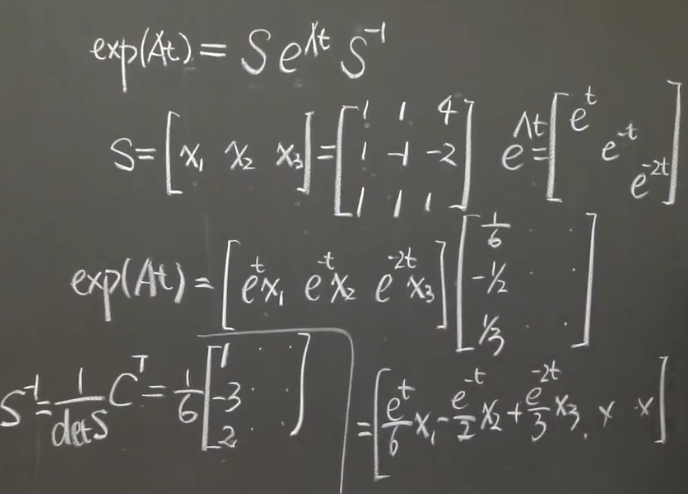 exp(At) = S e^Λt S^-1
S = [x₁ x₂ x₃] = [1 1 4; 1 -1 -2; 1 1 1] e^Λt = [e^t e^-t e^-2t]
exp(At) = [e^t x₁ e^-t x₂ e^-2t x₃] [1/6 . .; -1/2 . .; 1/3 . .]
S^-1 = 1/det S C^T = 1/6 [1 . .; -3 . .; 2 . .]
= [e^t/6 x₁ - e^-t/2 x₂ + e^-2t/3 x₃, x x]